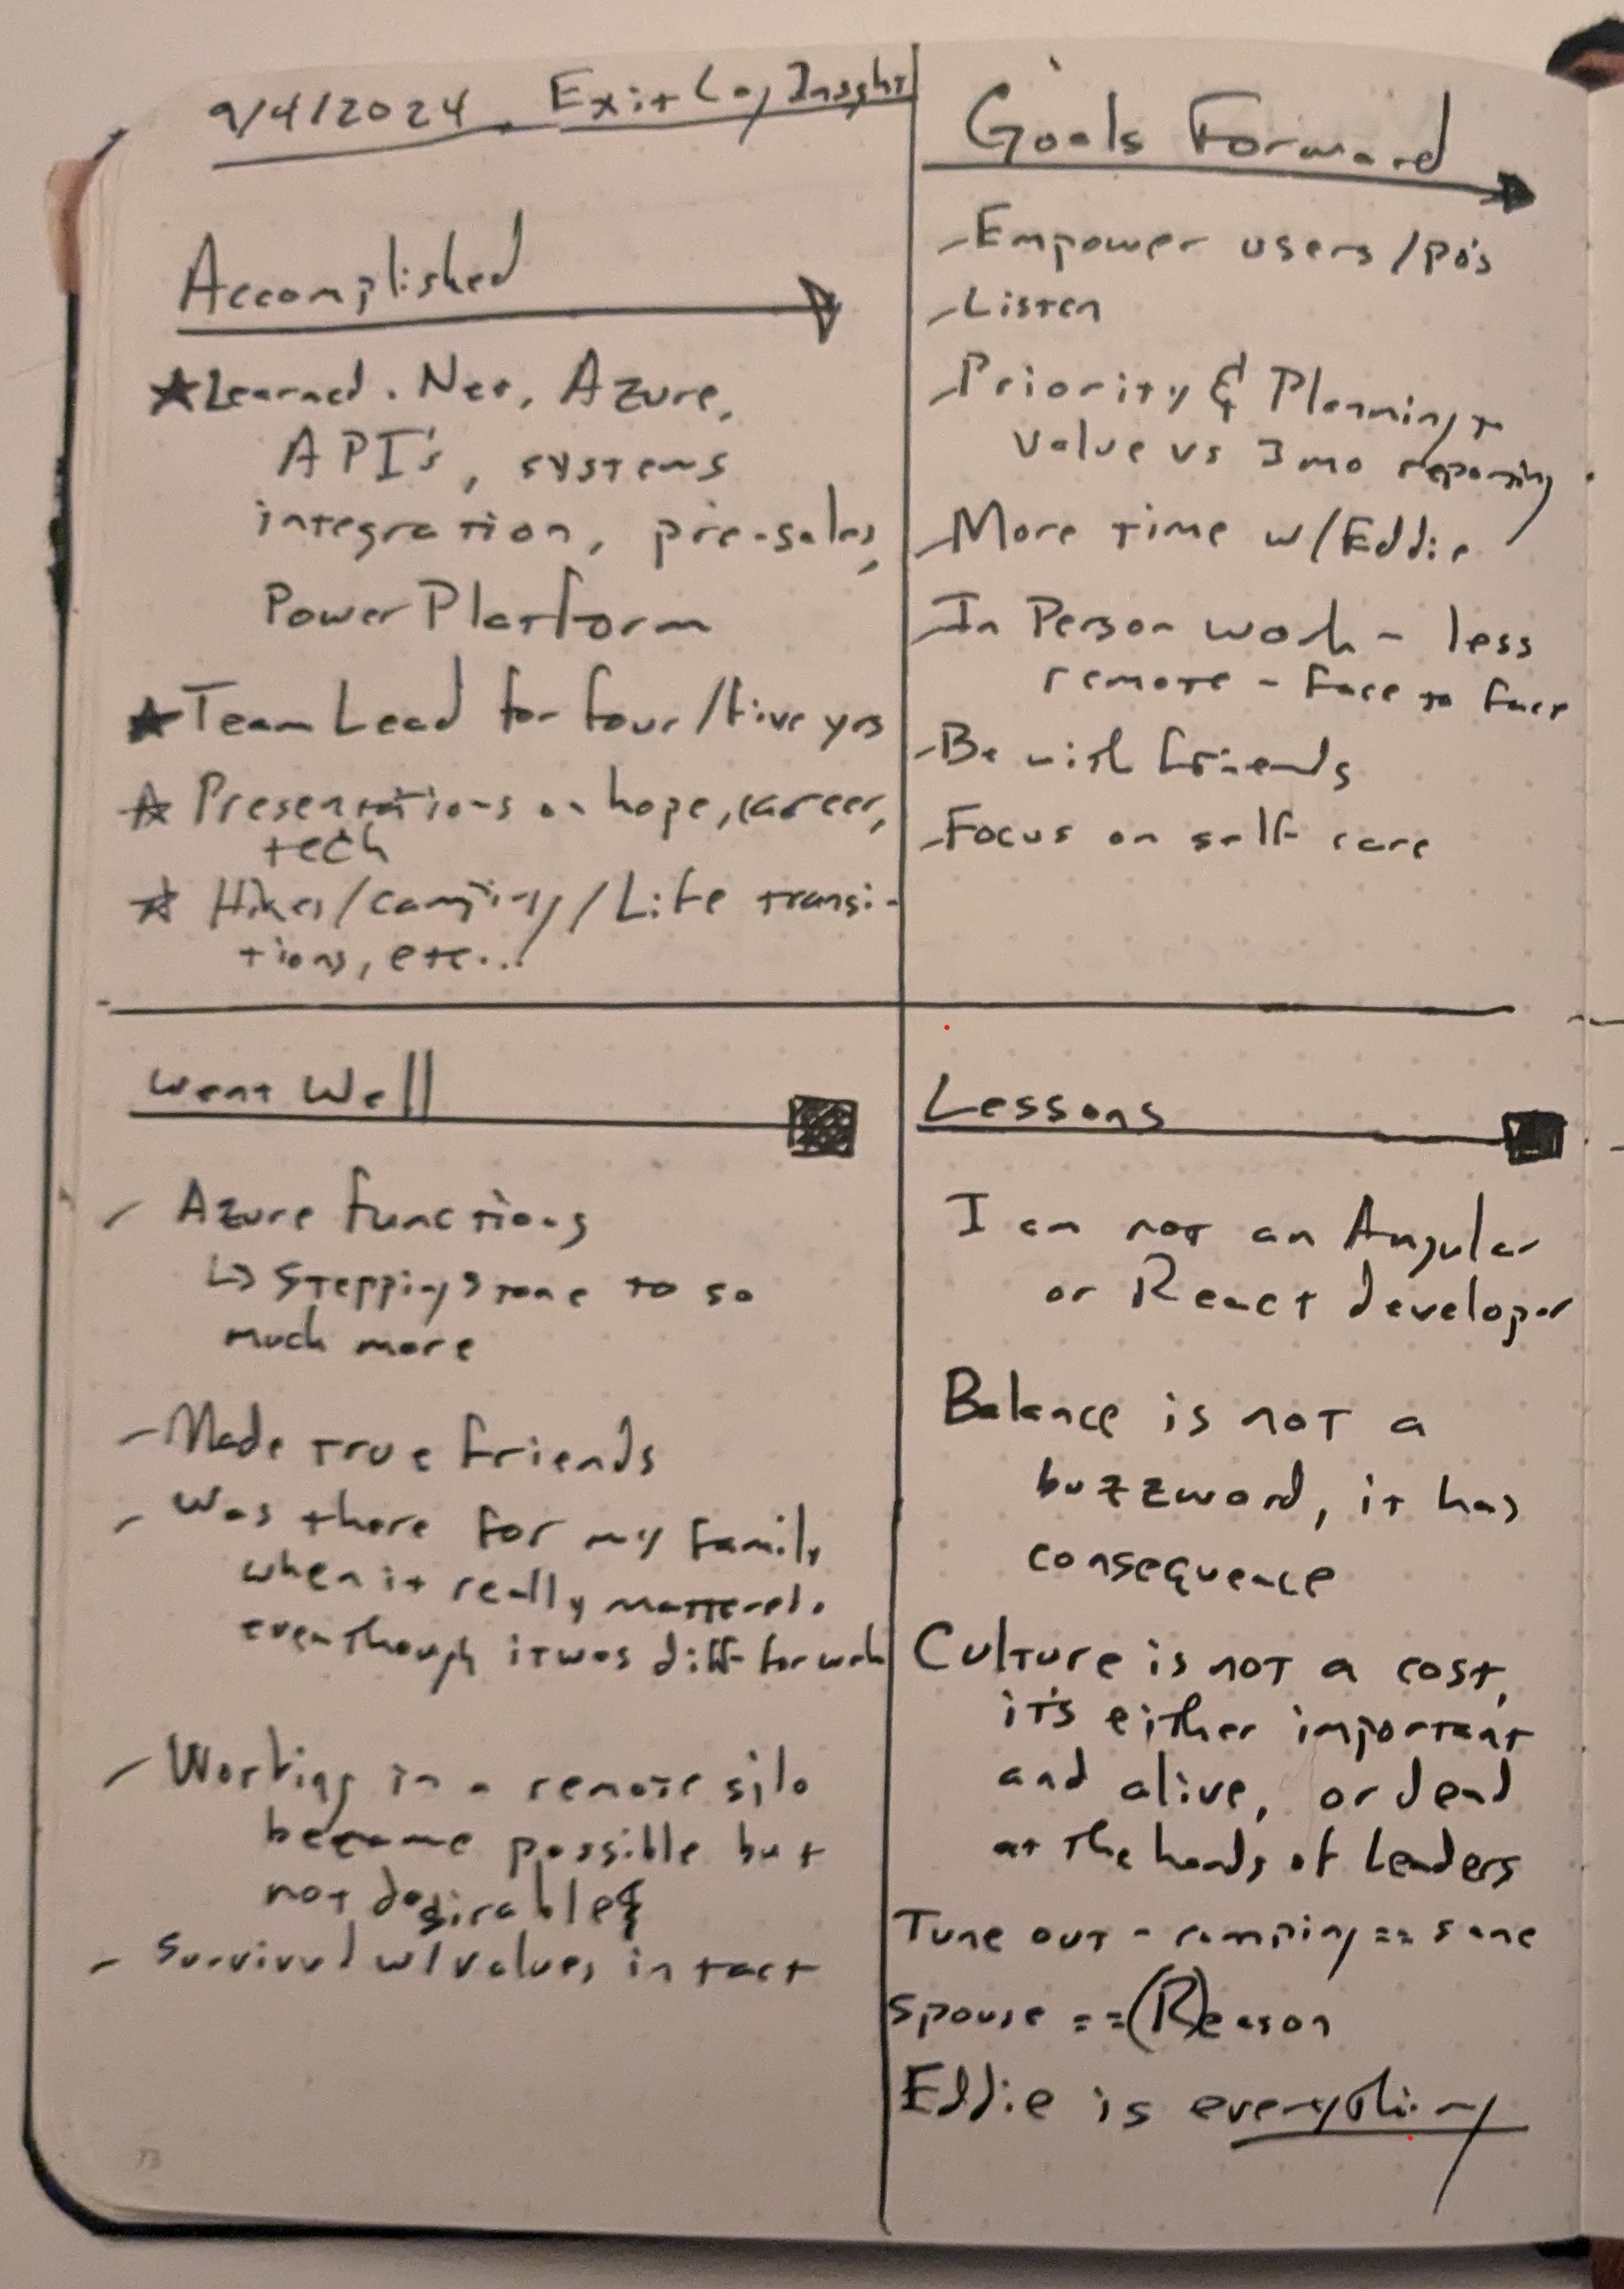 9/4/2024. Exit Log Insght
Accomplished
Learned .Net, Azure,
API's, systems
integration, pre-sales,
Power Platform
Team Lead for four/five yrs
Presentations on hope, career,
tech
Hikes/camping/Life transi-
tions, etc...
Goals Forward
- Empower users/po's
- Listen
- Priority & Planning
value vs 3 mo reporting
- More time w/Eddie
- In Person work - less
remote - face to face
- Be with friends
- Focus on self care
Went Well
- Azure functions
↳ Stepping stone to so
much more
- Made true friends
- Was there for my family
when it really mattered.
even though it was diff for work
- Working in a remote silo
became possible but
not desirable
- Survived w/values in tact
Lessons
I am not an Angular
or React developer
Balance is not a
buzzword, it has
consequence
Culture is not a cost,
it's either important
and alive, or dead
at the hands of leaders
Tune out - camping == sane
Spouse == (R)eason
Eddie is everything